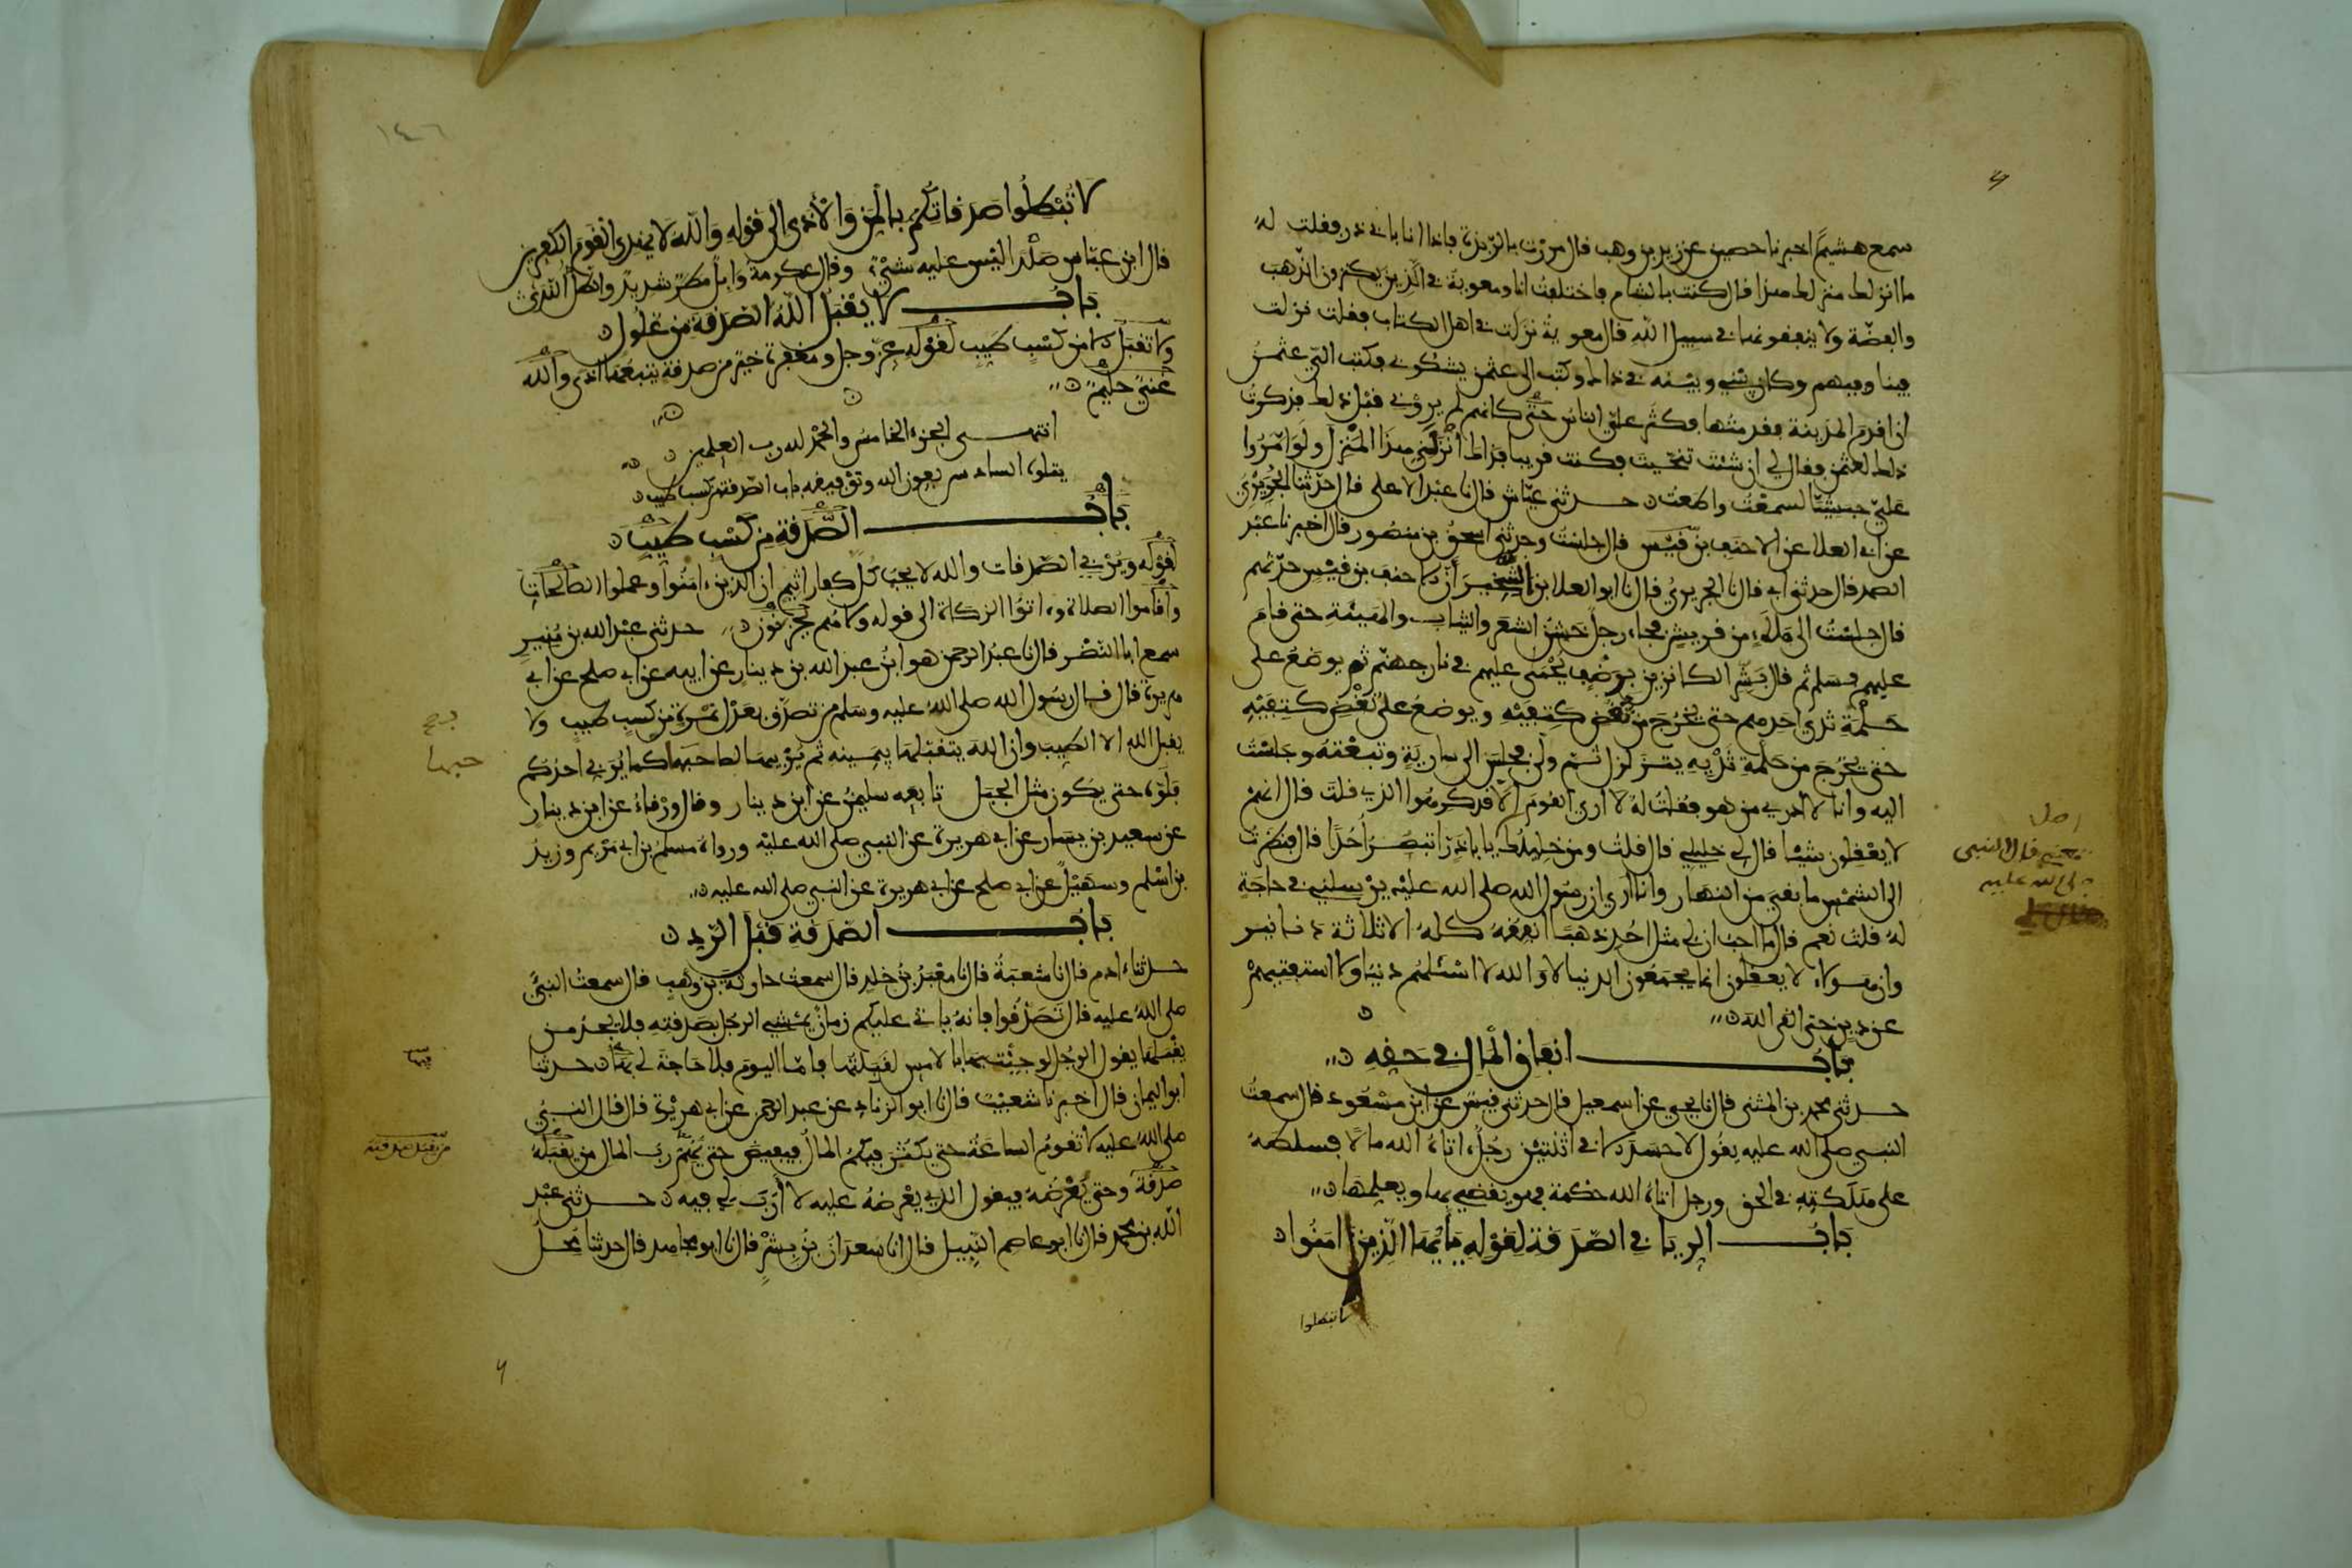 سمع هشيما اخبرنا حصين عن زيد بن وهب قال مررت بالربذة فاذا انا بابي ذر فقلت له
ما انزلك منزلك هذا قال كنت بالشام فاختلفت انا ومعوية في الذين يكنزون الذهب
والفضة ولا ينفقونها في سبيل الله قال معوية نزلت في اهل الكتاب فقلت نزلت
فينا وفيهم وكان بيني وبينه في ذاك وكتب الى عثمن يشكوني فكتب الي عثمن
ان اقدم المدينة فقدمتها فكثر علي الناس حتى كانهم لم يروني قبل ذلك فذكرت
ذلك لعثمن فقال لي ان شئت تنحيت فكنت قريبا فذاك انزلني هذا المنزل ولو امروا
علي حبشيا لسمعت واطعت حدثني عياش قال نا عبد الاعلى قال حدثنا الجريري
عن ابي العلا عن الاحنف بن قيس قال جلست وحدثني اسحق بن منصور قال اخبرنا عبد
الصمد قال حدثني ابي قال نا الجريري قال نا ابو العلا بن الشخير ان الاحنف بن قيس حدثهم
قال جلست الى ملاء من قريش فجاء رجل خشن الشعر والثياب والهيئة حتى قام
عليهم فسلم ثم قال بشر الكانزين برضف يحمى عليهم في نار جهنم ثم يوضع على
حلمة ثدي احدهم حتى يخرج من نغض كتفيه ويوضع على نغض كتفيه
حتى يخرج من حلمة ثديه يتزلزل ثم ولى فجلس الى سارية وتبعته وجلست
اليه وانا لا ادري من هو فقلت له لا ارى القوم الا قد كرهوا الذي قلت قال انهم
لا يعقلون شيئا قال لي خليلي قال قلت ومن خليلك يا باذر اتبصر احدا قال فنظرت
الى الشمس ما بقي من النهار وانا ارى ان رسول الله صلى الله عليه يرسلني في حاجة
له قلت نعم قال ما احب ان لي مثل احد ذهبا انفقه كله الا ثلاثة دنانير
وان هولاء لا يعقلون انما يجمعون الدنيا لا والله لا اسئلهم دنيا ولا استفتيهم
عن دين حتى القى الله
باب انفاق المال في حقه
حدثني محمد بن المثنى قال نا يحيى عن اسمعيل قال حدثني قيس عن ابن مسعود قال سمعت
النبي صلى الله عليه يقول لا حسد الا في اثنتين رجل اتاه الله مالا فسلطه
على هلكته في الحق ورجل اتاه الله حكمة فهو يقضي بها ويعلمها
باب الريا في الصدقة لقوله يايها الذين امنوا
لا تبطلوا
اصل
قال النبي
صلى الله عليه
١٤٦
لا تبطلوا صدقاتكم بالمن والاذى الى قوله والله لا يهدي القوم الكفرين
قال ابن عباس صلدا ليس عليه شيء وقال عكرمة وابل مطر شديد والطل الندى
باب لا يقبل الله الصدقة من غلول
ولا تقبل الا من كسب طيب لقوله عز وجل ومغفرة خير من صدقة يتبعها اذى والله
غني حليم
انتهى الجزء الخامس والحمد لله رب العلمين
يتلوه السادس بعون الله وتوفيقه باب الصدقة من كسب طيب
باب الصدقة من كسب طيب
لقوله ويربي الصدقات والله لا يحب كل كفار اثيم ان الذين ءامنوا وعملوا الصالحات
واقاموا الصلاة وءاتوا الزكاة الى قوله ولا هم يحزنون حدثني عبد الله بن منير
سمع ابا النضر قال نا عبد الرحمن هو ابن عبد الله بن دينار عن ابيه عن ابي صلح عن ابي
هريرة قال قال رسول الله صلى الله عليه وسلم من تصدق بعدل تمرة من كسب طيب ولا
يقبل الله الا الطيب وان الله يتقبلها بيمينه ثم يربيها لصاحبها كما يربي احدكم
فلوه حتى يكون مثل الجبل تابعه سليمن عن ابن دينار وقال ورقاء عن ابن دينار
عن سعيد بن يسار عن ابي هريرة عن النبي صلى الله عليه ورواه مسلم بن ابي مريم وزيد
بن اسلم وسهيل عن ابي صلح عن ابي هريرة عن النبي صلى الله عليه
باب الصدقة قبل الرد
حدثنا ءادم قال نا شعبة قال نا معبد بن خلد قال سمعت حارثة بن وهب قال سمعت النبي
صلى الله عليه قال تصدقوا فانه ياتي عليكم زمان يمشي الرجل بصدقته فلا يجد من
يقبلها يقول الرجل لو جئت بها بالامس لقبلتها فاما اليوم فلا حاجة لي بها حدثنا
ابو اليمان قال اخبرنا شعيب قال نا ابو الزناد عن عبد الرحمن عن ابي هريرة قال قال النبي
صلى الله عليه لا تقوم الساعة حتى يكثر فيكم المال فيفيض حتى يهم رب المال من يقبله
صدقة وحتى يعرضه فيقول الذي يعرضه عليه لا ارب لي فيه حدثني عبد
الله بن محمد قال نا ابو عاصم النبيل قال انا سعدان بن بشر قال نا ابو مجاهد قال حدثنا محل
فيها
من يقبل صدقته